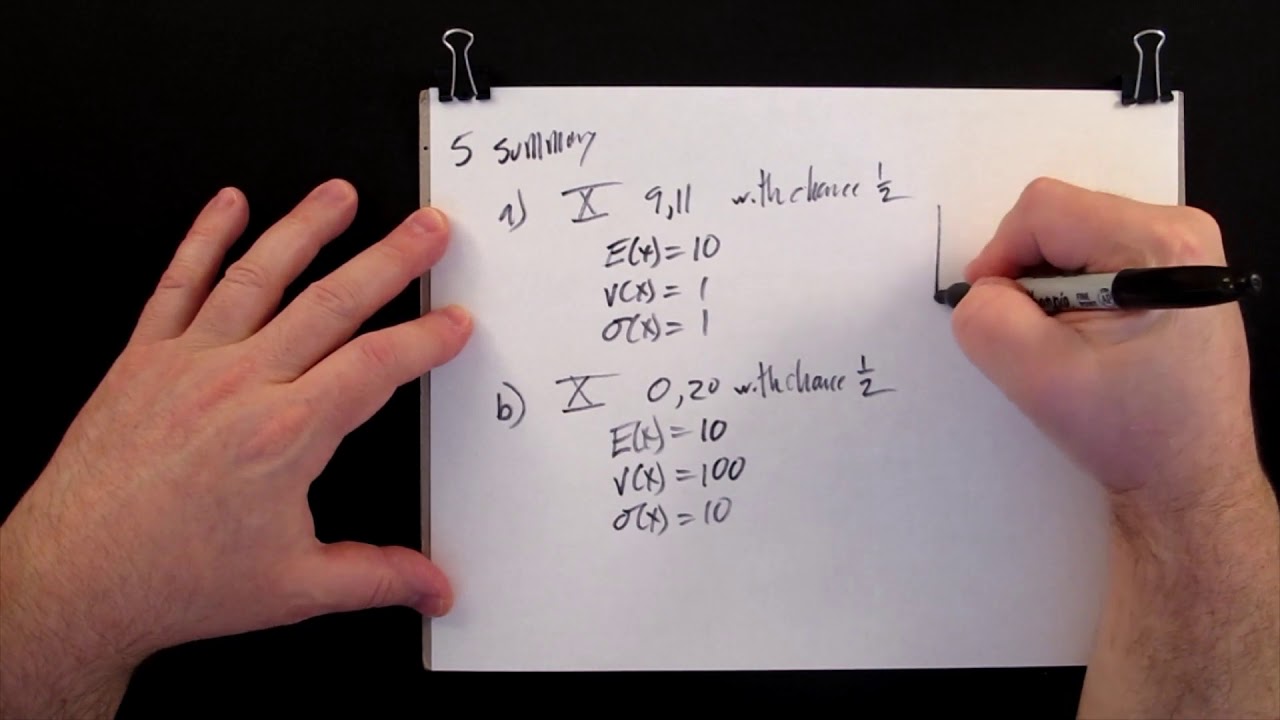 5 summary
a) X 9,11 with chance 1/2
E(x) = 10
V(x) = 1
σ(x) = 1
b) X 0,20 with chance 1/2
E(x) = 10
V(x) = 100
σ(x) = 10